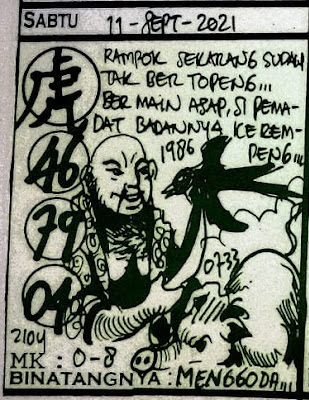 SABTU 11-SEPT-2021
RAMPOK SEKARANG SUDAH
TAK BER TOPENG...
BER MAIN ASAP, SI PEMA-
DAT BADANNYA KEREM-
PENG...
虎
46
79
04
1986
0733
2104
MK : 0-8
BINATANGNYA : MENGGODA...